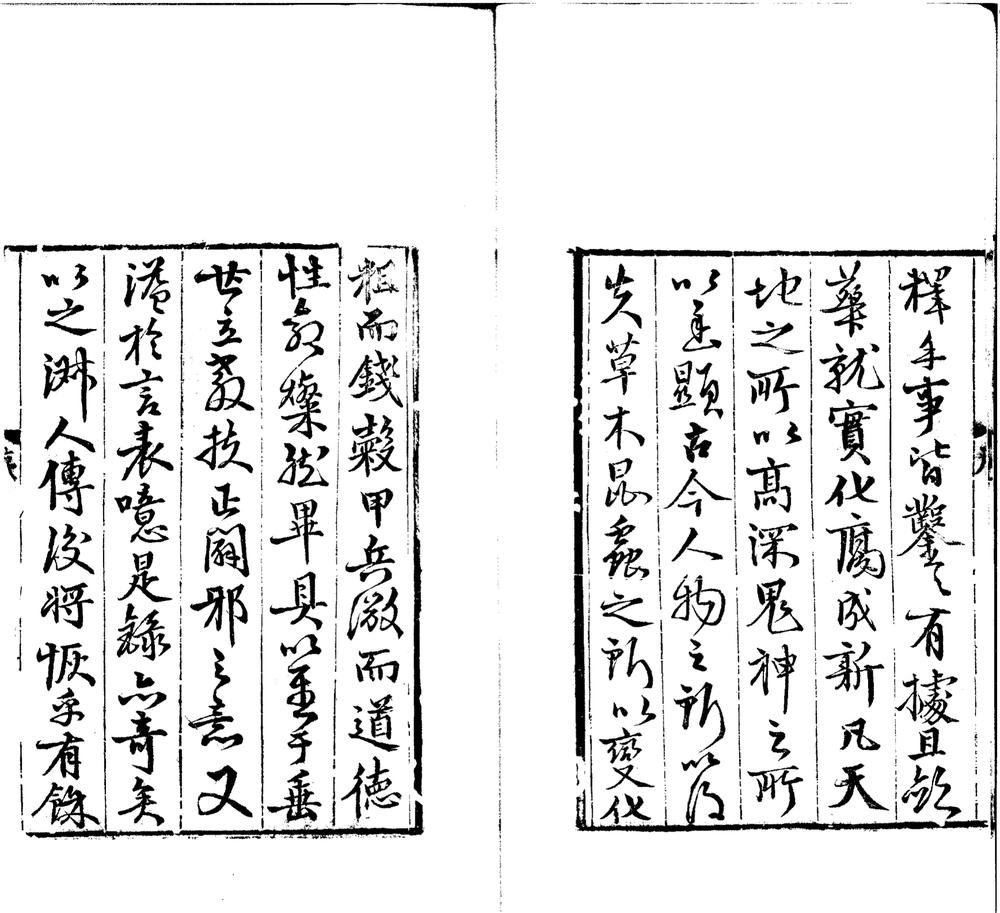 釋手事皆鑿〻有據且歛
華就實化腐成新凡天
地之所以高深鬼神之所
以幽顯古今人物之所以得
失草木昆蟲之所以變化
粗而錢穀甲兵微而道德
性命燦然畢具以至于垂
世立教扶正闢邪之意又
溢於言表噫是錄亦奇矣
以之淑人傳後將恢乎有餘